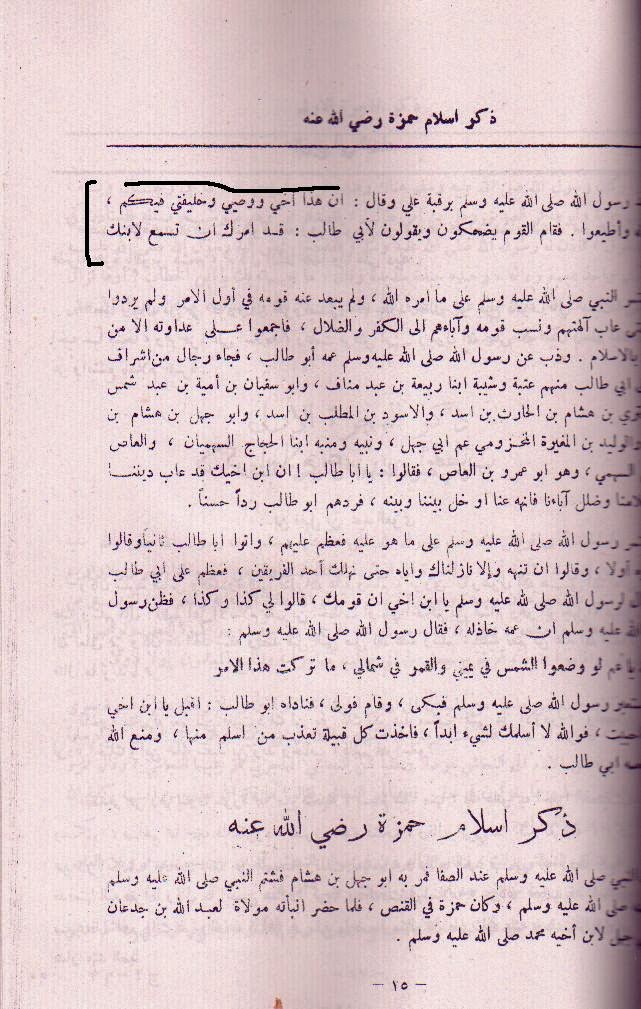 ذكر اسلام حمزة رضي الله عنه
رسول الله صلى الله عليه وسلم برقبة علي وقال : ان هذا اخي ووصيي وخليفتي فيكم ،
وأطيعوا . فقام القوم يضحكون ويقولون لأبي طالب : قد امرك ان تسمع لابنك
النبي صلى الله عليه وسلم على ما امره الله ، ولم يبعد عنه قومه في أول الامر ولم يردوا
عاب آلهتهم ونسب قومه وآباءهم الى الكفر والضلال ، فاجمعوا على عداوته الا من
بالاسلام . وذب عن رسول الله صلى الله عليه وسلم عمه أبو طالب ، فجاء رجال من اشراف
ابي طالب منهم عتبة وشيبة ابنا ربيعة بن عبد مناف ، وابو سفيان بن أمية بن عبد شمس
بن هشام بن الحارث بن اسد ، والاسود بن المطلب بن اسد ، وابو جهل بن هشام بن
والوليد بن المغيرة المخزومي عم ابي جهل ، ونبيه ومنبه ابنا الحجاج السهميان ، والعاص
السهمي ، وهو ابو عمرو بن العاص ، فقالوا : يا أبا طالب ! ان ابن اخيك قد عاب ديننا
وضلل آباءنا فانهه عنا او خل بيننا وبينه ، فردهم ابو طالب رداً حسناً .
رسول الله صلى الله عليه وسلم على ما هو عليه فعظم عليهم ، واتوا ابا طالب ثانياً وقالوا
أولا ، وقالوا ان تنهه وإلا نازلناك واياه حتى نهلك أحد الفريقين ، فعظم على أبي طالب
لرسول الله صلى لله عليه وسلم يا ابن اخي ان قومك ، قالوا لي كذا وكذا ، فظن رسول
عليه وسلم ان عمه خاذله ، فقال رسول الله صلى الله عليه وسلم :
يا عم لو وضعوا الشمس في يميني والقمر في شمالي ، ما تركت هذا الامر
رسول الله صلى الله عليه وسلم فبكى ، وقام فولى ، فناداه ابو طالب : اقبل يا ابن اخي
فوالله لا أسلمك لشيء ابداً ، فاخذت كل قبيلة تعذب من اسلم منها ، ومنع الله
ابي طالب .
ذكر اسلام حمزة رضي الله عنه
النبي صلى الله عليه وسلم عند الصفا فمر به ابو جهل بن هشام فشتم النبي صلى الله عليه وسلم
صلى الله عليه وسلم ، وكان حمزة في القنص ، فلما حضر انبأته مولاة لعبد الله بن جدعان
لابن أخيه محمد صلى الله عليه وسلم .
– ١٥ –